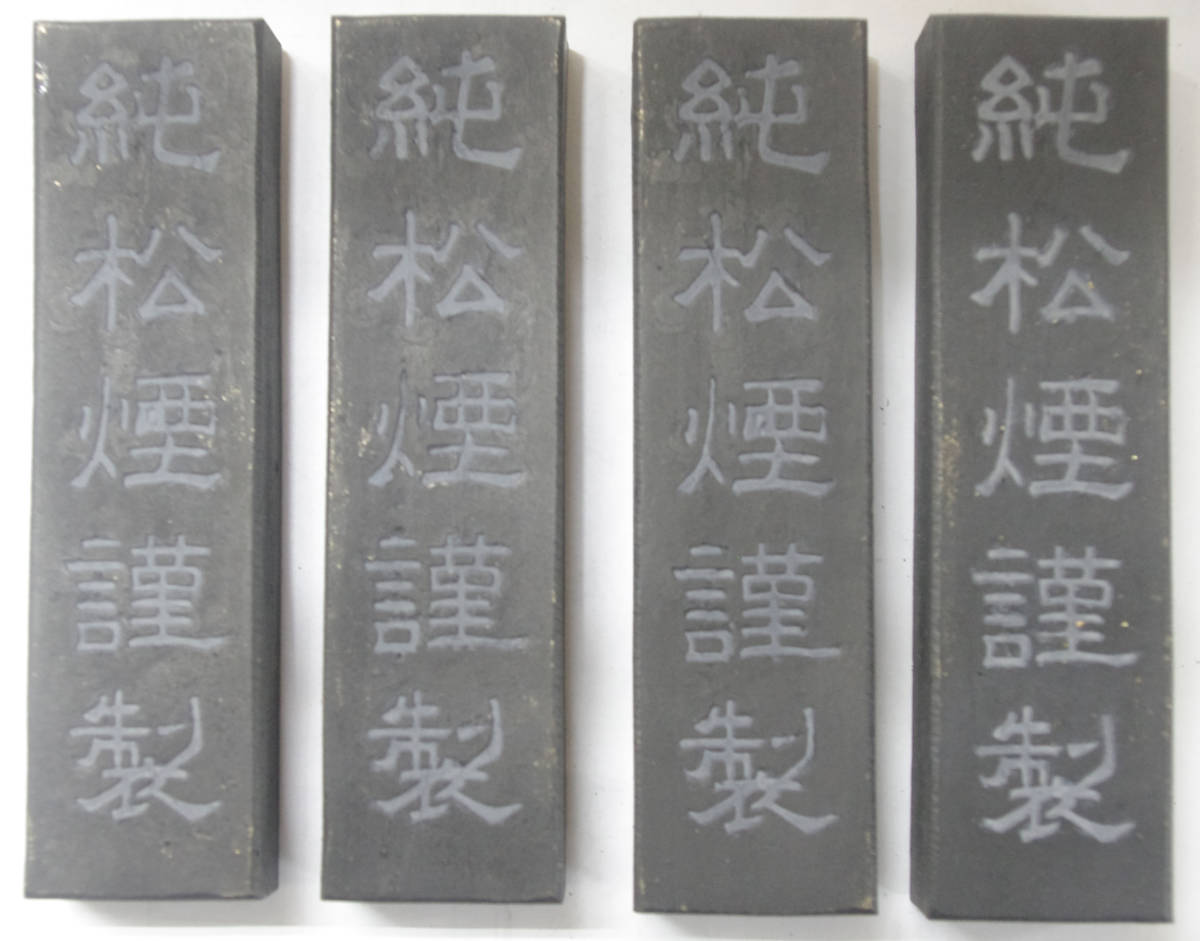 純松煙謹製
純松煙謹製
純松煙謹製
純松煙謹製